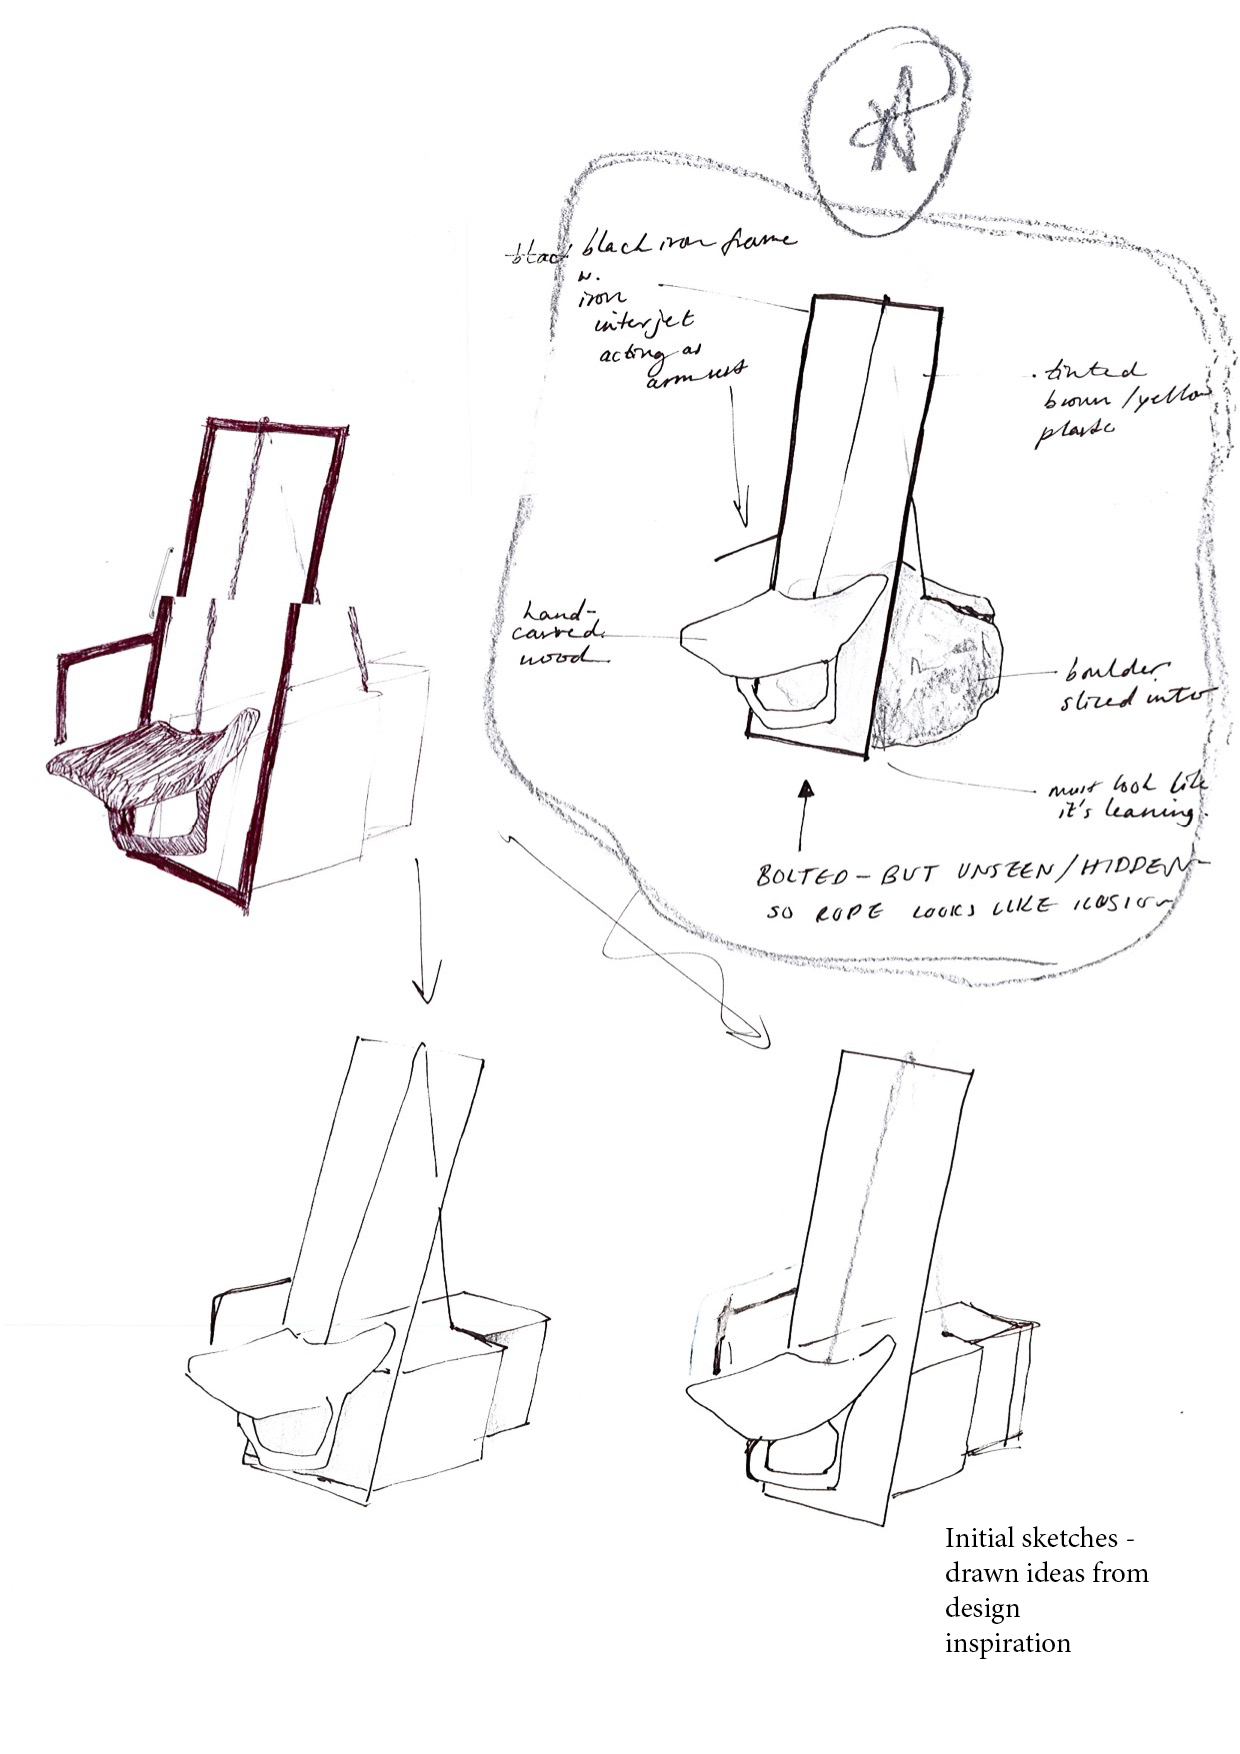 black iron frame
w.
iron
interjet
acting as
armrest
tinted
brown/yellow
plastic
hand-
carved
wood
boulder
sliced into
must look like
it's leaning.
BOLTED - BUT UNSEEN/HIDDEN
SO ROPE LOOKS LIKE ILUSION
Initial sketches -
drawn ideas from
design
inspiration